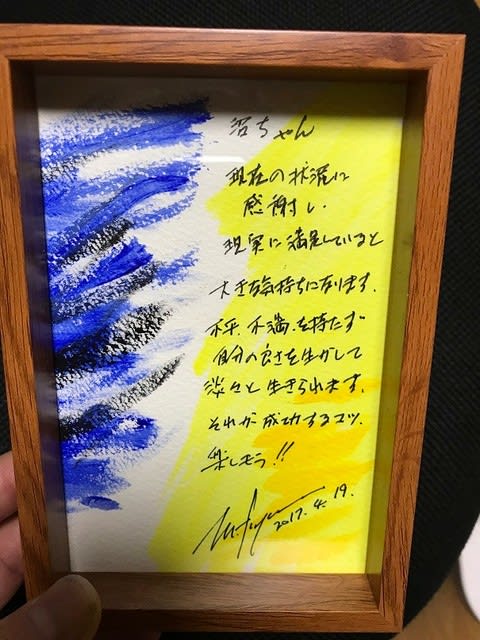 沼ちゃん
現在の状況に
感謝し、
現実に満足していると
大きな気持ちになります。
不平、不満、を持たず
自分の良さを生かして
淡々と生きられます。
それが成功するコツ。
楽しもう!!
2017. 4. 19.